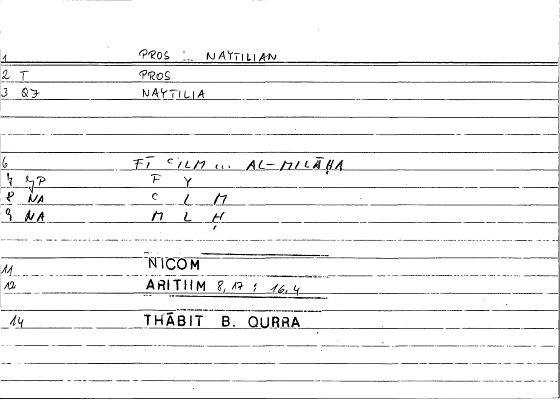 1 PROS ... NAYTILIAN
2 T PROS
3 QZ NAYTILIA
6 FĪ ʿILM ... AL-MILĀḤA
7 YP F Y
8 NA C L M
9 NA M L Ḥ
11 NICOM
12 ARITHM 8,17 ; 16,4
14 THĀBIT B. QURRA